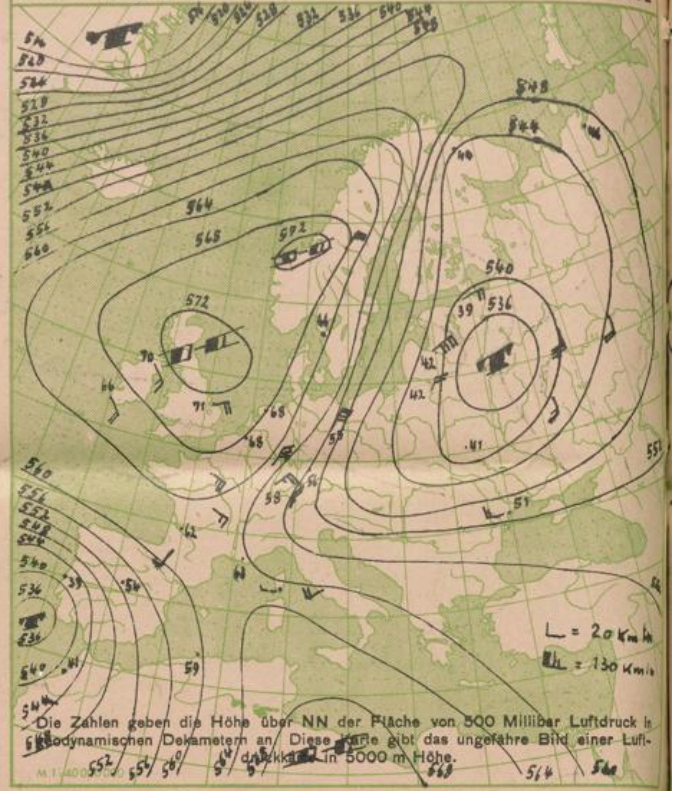 516
520
524
528
532
536
540
544
548
552
556
560
516
520
524
528
532
536
540
544
548
564
568
572
572
70
66
71
68
68
44
548
544
46
540
536
39
42
42
41
552
55
58
56
51
62
560
556
552
548
544
540
536
T
536
540
39
54
41
59
L = 20 Km/h
= 130 Km/h
Die Zahlen geben die Höhe über NN der Fläche von 500 Millibar Luftdruck in
geodynamischen Dekametern an. Diese Karte gibt das ungefähre Bild einer Luft-
druckkarte in 5000 m Höhe.
552
556
560
564
568
564
560